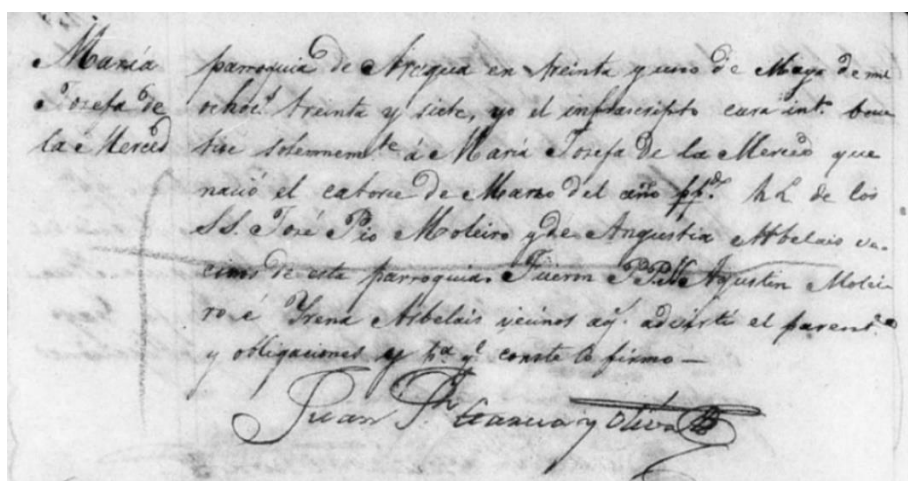 María
Josefa de
la Merced
parroquia de Aregua en treinta y uno de Mayo de mil
ochoc.s treinta y siete, yo el infrascripto cura int.o bau
tise solemnem.te á María Josefa de la Merced que
nació el catorse de Marzo del año pp.do h. l. de los
SS. José Pio Moleiro y de Angustia Arbelais ve-
cinos de esta parroquia. Fueron PP. Agustin Molei-
ro é Yrena Arbelais vecinos aq.s advirtí el parent.o
y obligaciones y p.a q.e conste lo firmo—
Juan Garcia y Oliva